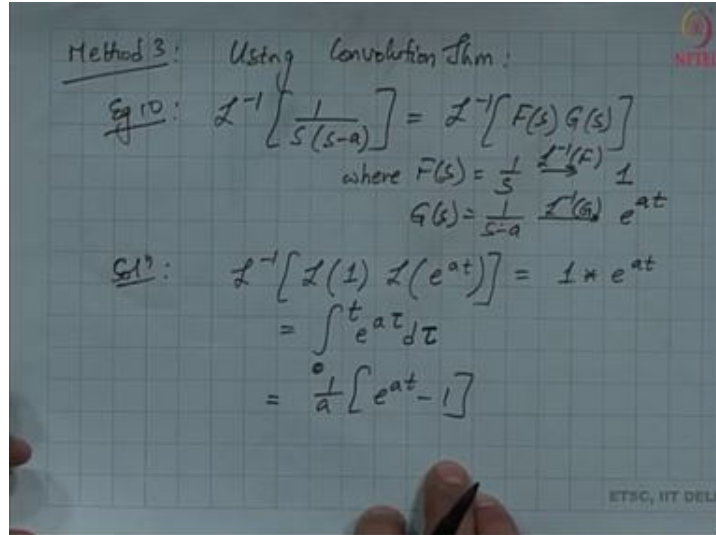 Method 3: Using Convolution Thm:
NPTEL
Eg 10: ℒ⁻¹[1/(s(s-a))] = ℒ⁻¹[F(s) G(s)]
where F(s) = 1/s ℒ⁻¹(F)→ 1
G(s) = 1/(s-a) ℒ⁻¹(G)→ e^{at}
Solⁿ: ℒ⁻¹[ℒ(1) ℒ(e^{at})] = 1 * e^{at}
= ∫₀ᵗ e^{aτ} dτ
= 1/a [e^{at} - 1]
ETSC, IIT DEL